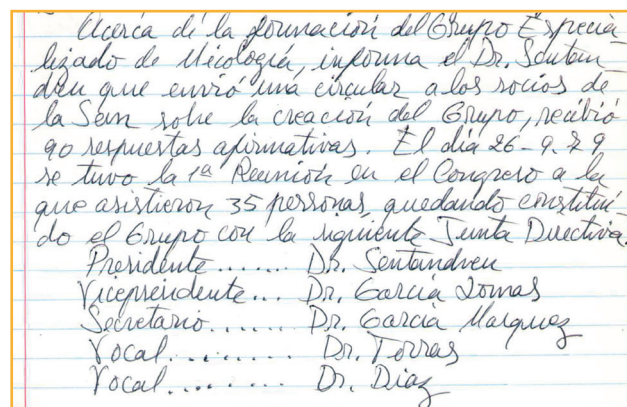 Acerca de la formación del Grupo Especia
lizado de Micología, informa el Dr. Sentan
dreu que envió una circular a los socios de
la Sem sobre la creación del Grupo, recibió
90 respuestas afirmativas. El día 26-9-79
se tuvo la 1ª Reunión en el Congreso a la
que asistieron 35 personas, quedando constitui
do el Grupo con la siguiente Junta Directiva.
Presidente....... Dr. Sentandreu
Vicepresidente... Dr. García Lomas
Secretario....... Dr. García Marquez
Vocal.......... Dr. Torras
Vocal.......... Dr. Diaz